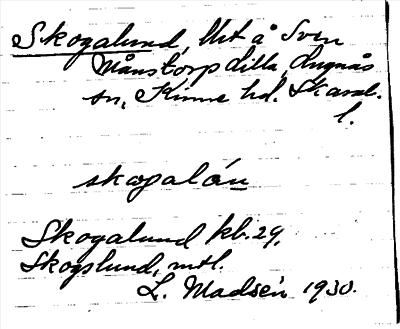 Skogalund, Utå Sven
Månstorp Lilla, Lugnås
sn, Kinne hd. Skarab.
l.
skogalón
Skogalund kb. 29.
Skogslund, mtl.
L. Madsén 1930.